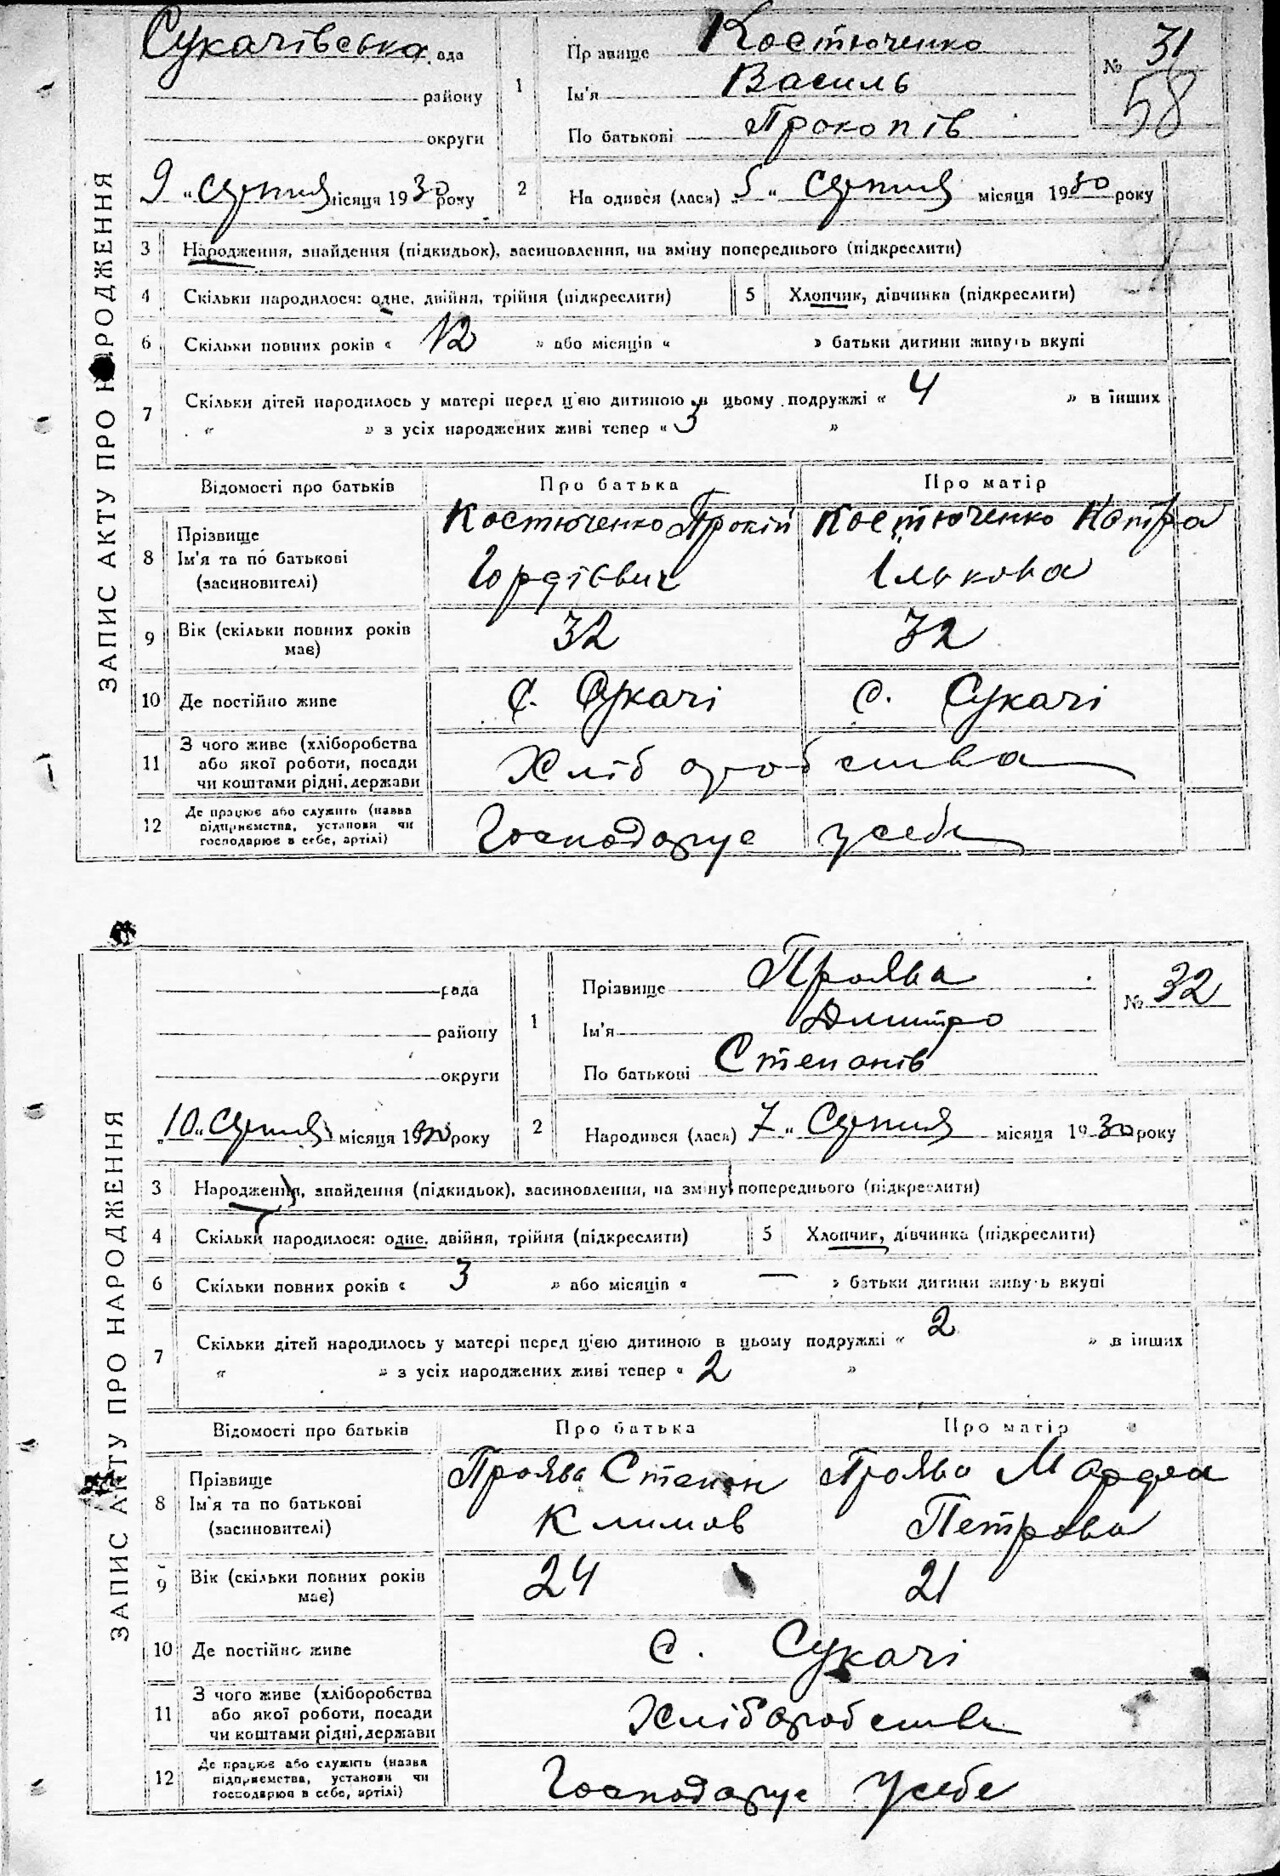 ЗАПИС АКТУ ПРО НАРОДЖЕННЯ
Сукачівська рада
району
округи
9 „ серпня місяця 1930 року
1 Прізвище Костюченко
Ім'я Василь
По батькові Прокопів
№ 31
58
2 Народився (лася) 5 „ серпня місяця 1930 року
3 Народження, знайдення (підкидьок), засиновлення, на зміну попереднього (підкреслити)
4 Скільки народилося: одне, двійня, трійня (підкреслити) 5 Хлопчик, дівчинка (підкреслити)
6 Скільки повних років « 12 » або місяців « » батьки дитини живуть вкупі
7 Скільки дітей народилось у матері перед ц'єю дитиною в цьому подружжі « 4 » в інших
« » з усіх народжених живі тепер « 3 »
Відомості про батьків Про батька Про матір
8 Прізвище
Ім'я та по батькові
(засиновителі)
Костюченко Прокіп
Гордієвич
Костюченко
Ількова
9 Вік (скільки повних років має) 32 32
10 Де постійно живе с. Сукачі с. Сукачі
11 З чого живе (хліборобства
або якої роботи, посади
чи коштами рідні, держави
Хліборобства
12 Де працює або служить (назва
підприємства, установи чи
господарює в себе, артілі)
Господарує у себе
ЗАПИС АКТУ ПРО НАРОДЖЕННЯ
рада
району
округи
„10„ серпня місяця 1930 року
1 Прізвище Проява
Ім'я Дмитро
По батькові Степанів
№ 32
2 Народився (лася) 7 „ серпня місяця 1930 року
3 Народження, знайдення (підкидьок), засиновлення, на зміну попереднього (підкреслити)
4 Скільки народилося: одне, двійня, трійня (підкреслити) 5 Хлопчик, дівчинка (підкреслити)
6 Скільки повних років « 3 » або місяців « — » батьки дитини живуть вкупі
7 Скільки дітей народилось у матері перед ц'єю дитиною в цьому подружжі « 2 » в інших
« » з усіх народжених живі тепер « 2 »
Відомості про батьків Про батька Про матір
8 Прізвище
Ім'я та по батькові
(засиновителі)
Проява Степан
Климов
Проява Марфа
Петрова
9 Вік (скільки повних років має) 24 21
10 Де постійно живе с. Сукачі
11 З чого живе (хліборобства
або якої роботи, посади
чи коштами рідні, держави
Хліборобства
12 Де працює або служить (назва
підприємства, установи чи
господарює в себе, артілі)
Господарує у себе